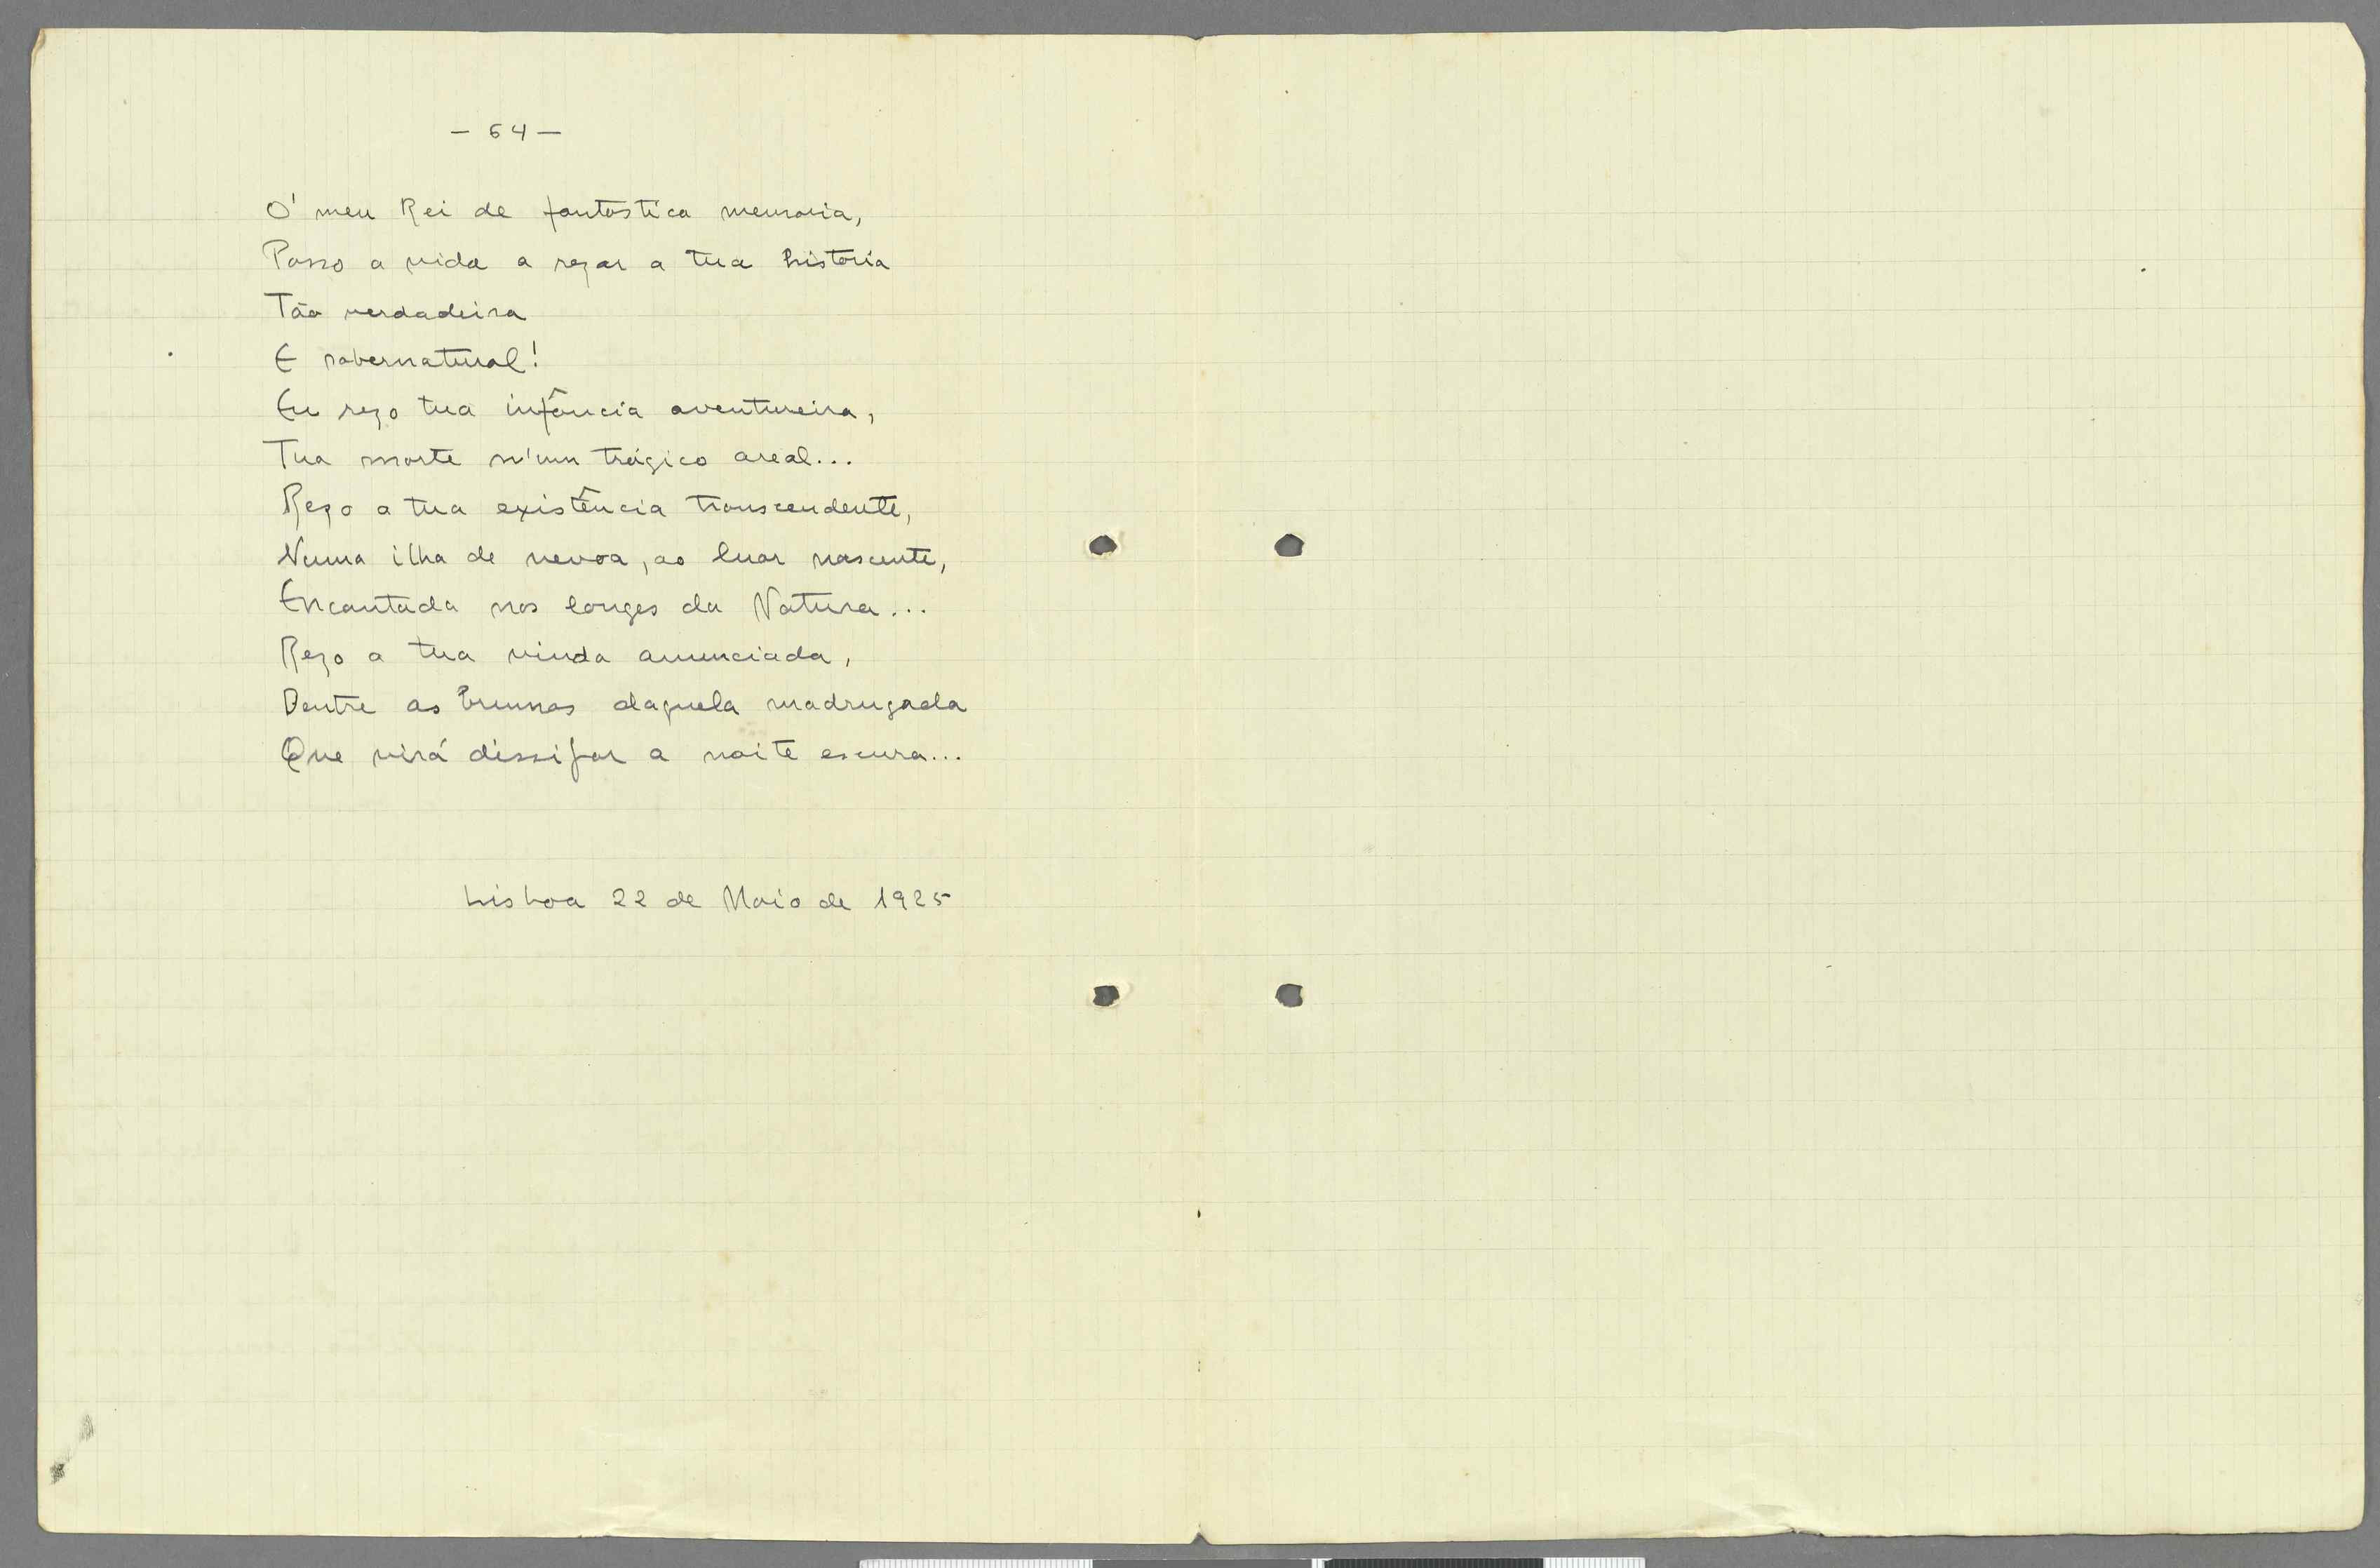 — 64 —
O' meu Rei de fantastica memoria,
Passo a vida a rezar a tua historia
Tão verdadeira
E sobernatural!
Eu rezo tua infância aventureira,
Tua morte n'um trágico areal...
Rezo a tua existência transcendente,
Numa ilha de nevoa, ao luar nascente,
Encantada nos longes da Natura...
Rezo a tua vinda anunciada,
Dentre as brumas daquela madrugada
Que virá dissipar a noite escura...
Lisboa 22 de Maio de 1925